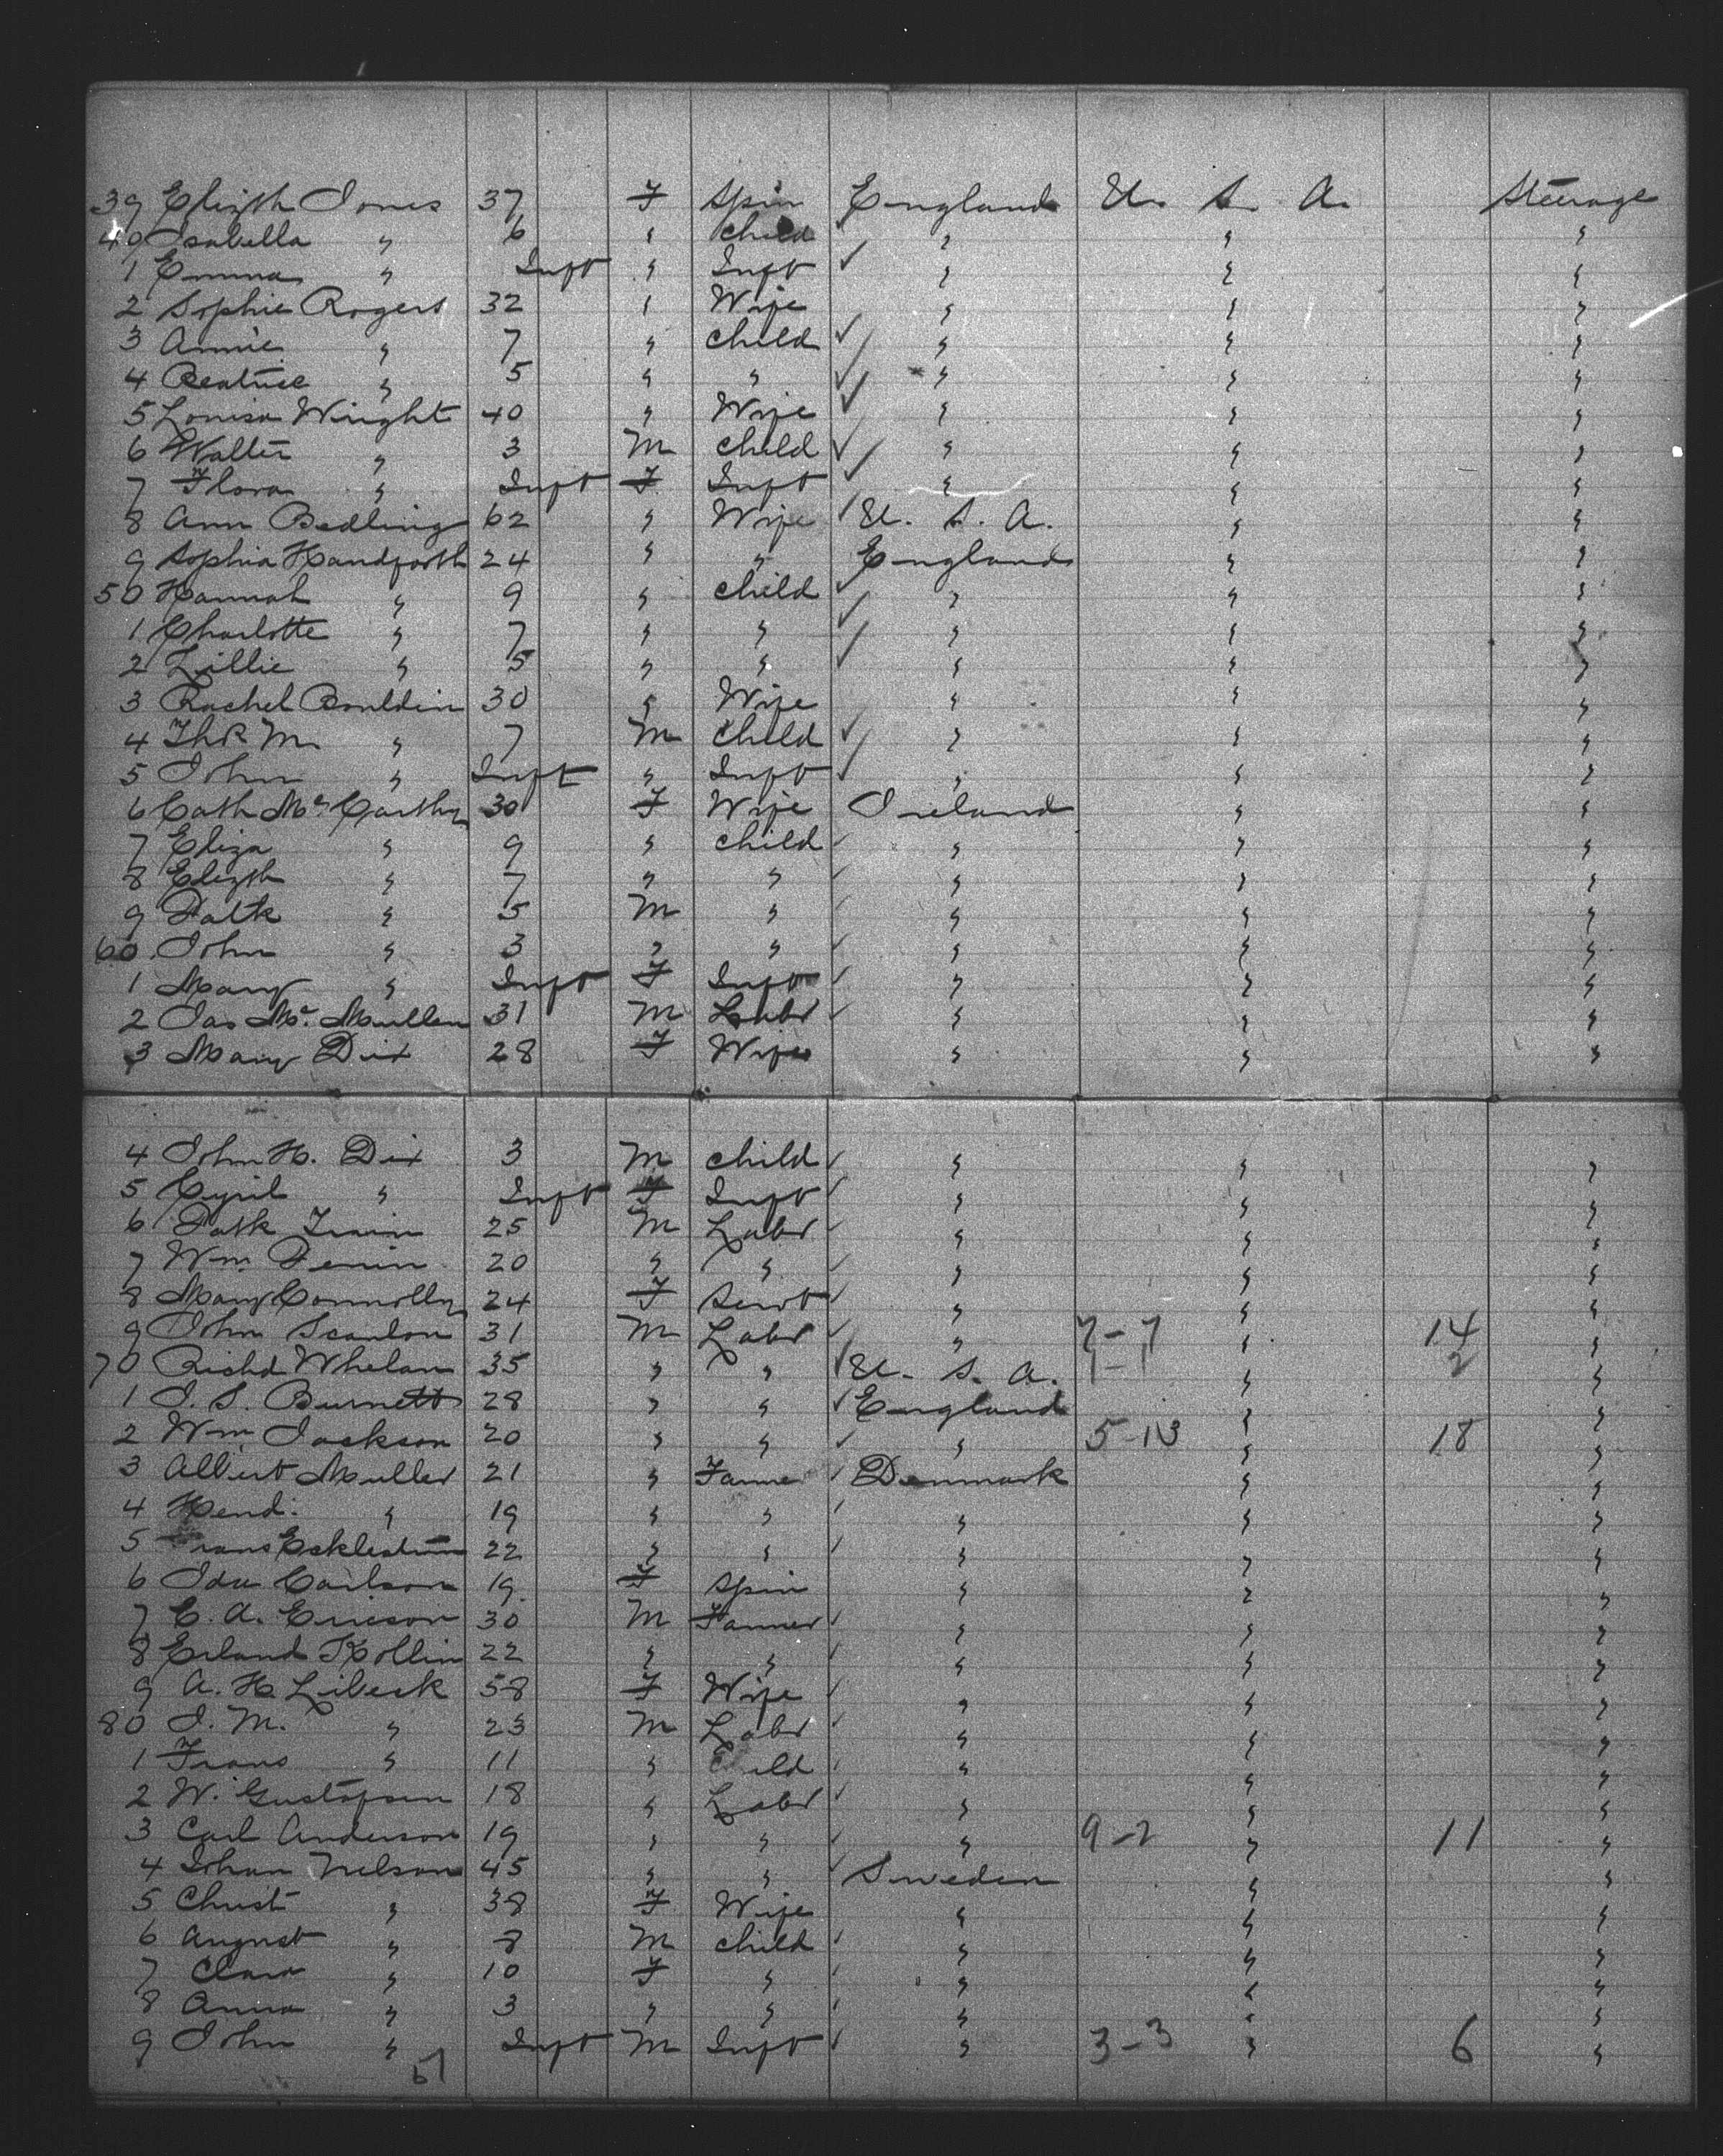 39 Elizth Jones 37 F Spin England U. S. A. Steerage
40 Isabella " 6 " Child " " "
1 Emma " Inft " Inft ✓ " " "
2 Sophie Rogers 32 " Wife " " "
3 Annie " 7 " Child ✓ " " "
4 Beatrice " 5 " " ✓ " " "
5 Louisa Wright 40 " Wife ✓ " " "
6 Walter " 3 M Child ✓ " " "
7 Flora " Inft F Inft ✓ " " "
8 Ann Bedling 62 " Wife ✓ U. S. A. " "
9 Sophia Handforth 24 " " England " "
50 Hannah " 9 " Child ✓ " " "
1 Charlotte " 7 " " ✓ " " "
2 Lillie " 5 " " ✓ " " "
3 Rachel Bouldin 30 " Wife " " "
4 Thos M. " 7 M Child ✓ " " "
5 John " Inft " Inft ✓ " " "
6 Cath McCarthy 30 F Wife Ireland " "
7 Eliza " 9 " Child ✓ " " "
8 Elizth " 7 " " ✓ " " "
9 Patk " 5 M " ✓ " " "
60 John " 3 " " ✓ " " "
1 Mary " Inft F Inft ✓ " " "
2 Jas McMullen 31 M Labr ✓ " " "
3 Mary Dix 28 F Wife " " "
4 John H. Dix 3 M Child ✓ " " "
5 Cyril " Inft F Inft ✓ " " "
6 Patk 25 M Labr ✓ " " "
7 Wm 20 " " ✓ " " "
8 Mary Connolly 24 F Servt ✓ " " "
9 John Scanlon 31 M Labr ✓ " 7-7 " 14 "
70 Richd Whelan 35 " " ✓ U. S. A. 1-1 " 2 "
1 J. S. Burnett 28 " " ✓ England " "
2 Wm Jackson 20 " " ✓ " 5-13 " 18 "
3 Albert Muller 21 " Farmer ✓ Denmark " "
4 Hend. " 19 " " ✓ " " "
5 Frans 22 " " ✓ " " "
6 Ida Carlson 19 F Spin " " "
7 C. A. Ericson 30 M Farmer ✓ " " "
8 Erland Kollin 22 " " ✓ " " "
9 A. H. Libeck 58 F Wife ✓ " " "
80 J. M. " 23 M Labr ✓ " " "
1 Frans " 11 " Child ✓ " " "
2 W. Gustafsen 18 " Labr ✓ " " "
3 Carl Anderson 19 " " ✓ " 9-2 " 11 "
4 Johan Nelson 45 " " ✓ Sweden " "
5 Christ " 38 F Wife " " "
6 August " 8 M Child ✓ " " "
7 Clara " 10 F " ✓ " " "
8 Anna " 3 " " ✓ " " "
9 John " Inft M Inft ✓ " 3-3 " 6 "
51